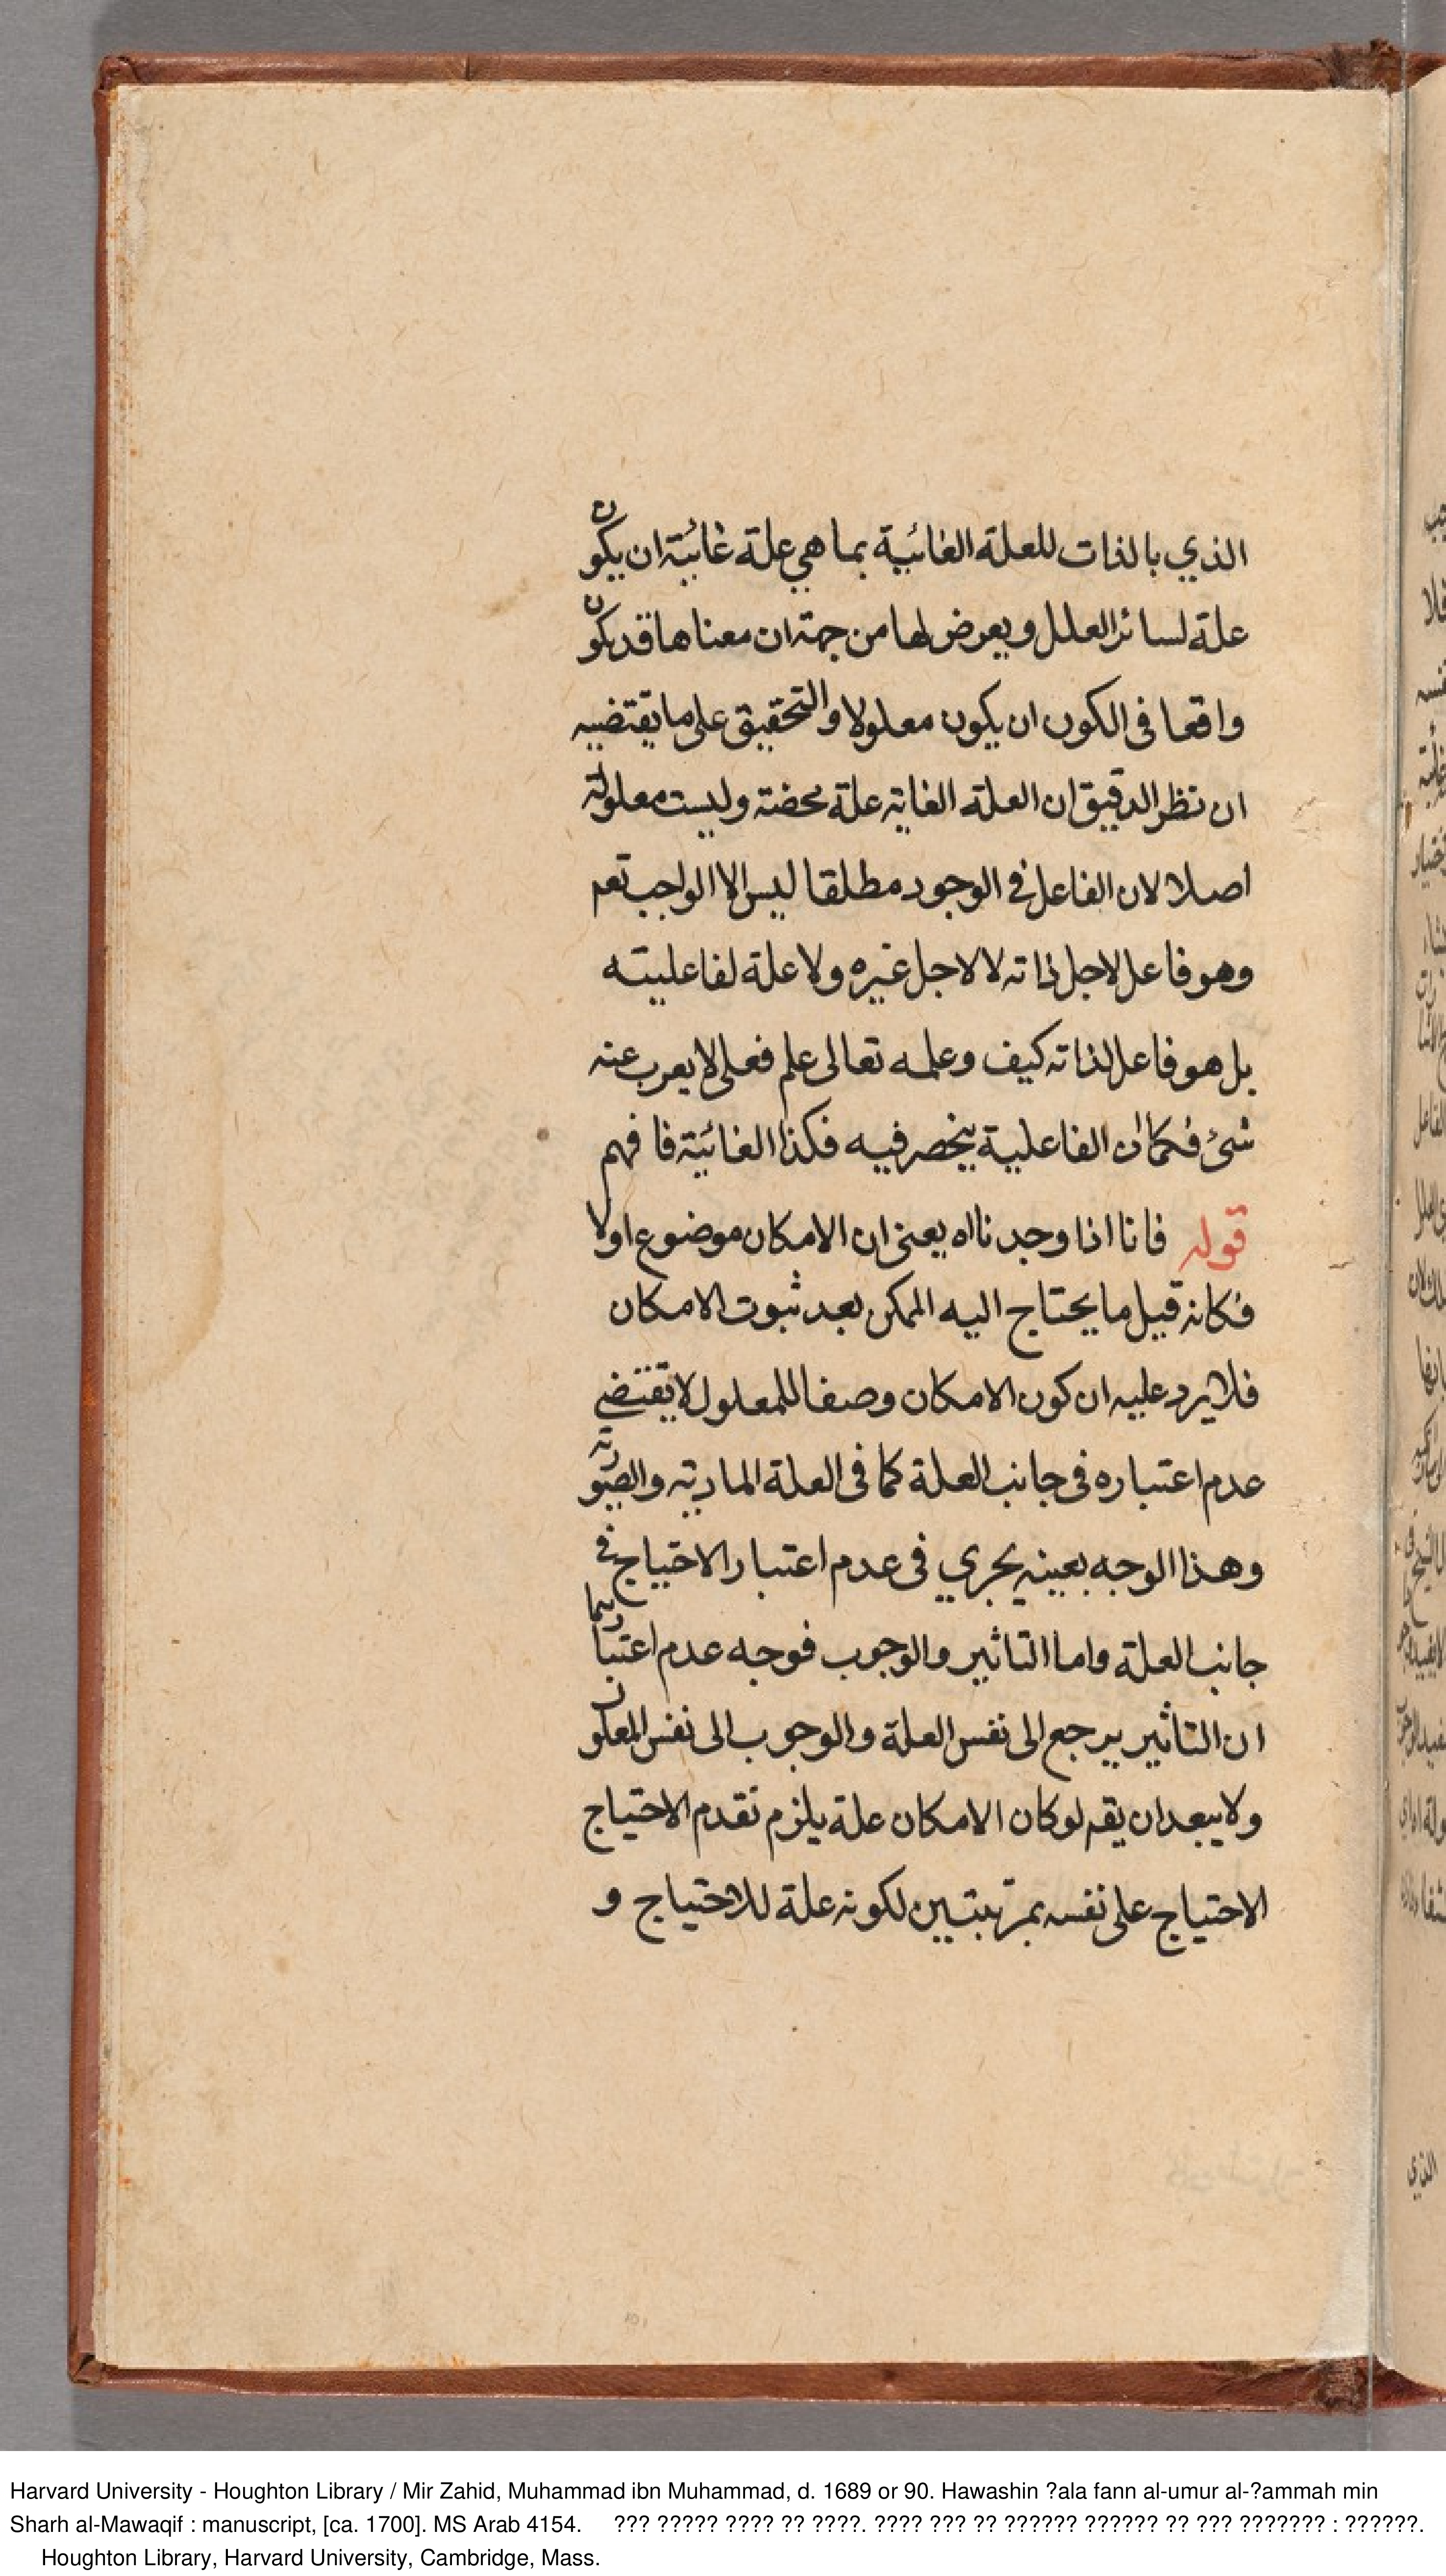 الذي بالذات للعلة الغائية بما هي علة غائية ان يكون
علة لسائر العلل ويعرض لها من جهة ان معناها قد يكون
واقعا فى الكون ان يكون معلولا والتحقيق على ما يقتضيه
ان نظر الدقيق ان العلة الغاية علة محضة وليست معلولة
اصلا لان الفاعل في الوجود مطلقا ليس الا الواجب تعم
وهو فاعل لاجل ذاته لا لاجل غيره ولا علة لفاعليته
بل هو فاعل لذاته كيف وعلمه تعالى علم فعلى لا يعرب عنه
شئ فكما ان الفاعلية ينحصر فيه فكذا الغائية فافهم
قوله فانا اذا وجدنا اه يعنى ان الامكان موضوع اولا
فكانه قيل ما يحتاج اليه الممكن بعد ثبوت الامكان
فلا يرد عليه ان كون الامكان وصفا للمعلول لا يقتضي
عدم اعتباره فى جانب العلة كما فى العلة المادية والصورية
وهذا الوجه بعينه يجري فى عدم اعتبار الاحتياج في
جانب العلة واما التاثير والوجوب فوجه عدم اعتبارهما
ان التاثير يرجع الى نفس العلة والوجوب الى نفس المعلول
ولا يبعد ان يقم لو كان الامكان علة يلزم تقدم الاحتياج
الاحتياج على نفسه بمرتبتين لكونه علة للاحتياج و
الذي
Harvard University - Houghton Library / Mir Zahid, Muhammad ibn Muhammad, d. 1689 or 90. Hawashin ?ala fann al-umur al-?ammah min
Sharh al-Mawaqif : manuscript, [ca. 1700]. MS Arab 4154. ??? ????? ???? ?? ????. ???? ??? ?? ?????? ?????? ?? ??? ??????? : ??????.
Houghton Library, Harvard University, Cambridge, Mass.